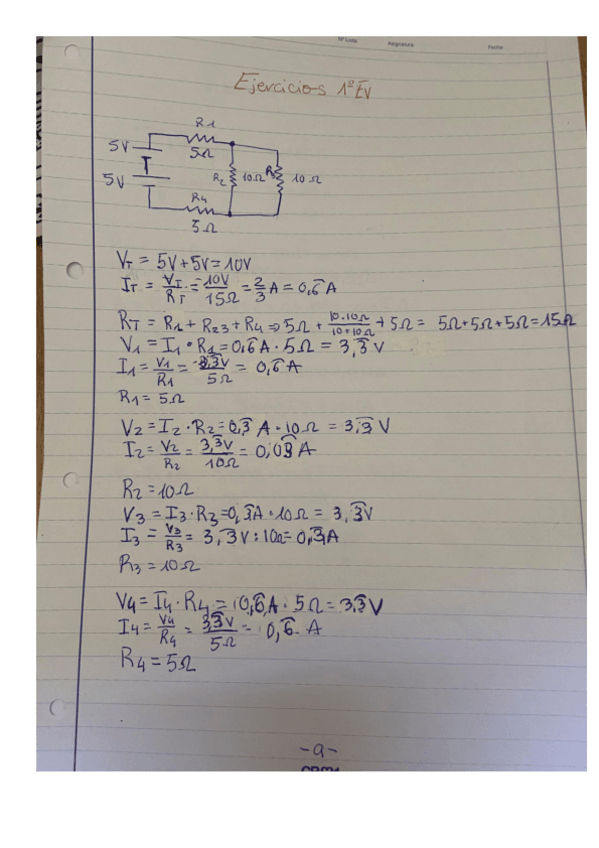 Nº Lista Asignatura Fecha
Ejercicios 1º Ev
R1
5V
5Ω
5V
R2 10Ω R3 10Ω
R4
5Ω
V_T = 5V+5V=10V
I_T = V_T/R_T = 10V/15Ω = 2/3 A = 0,6̄ A
R_T = R1 + R23 + R4 ⇒ 5Ω + 10·10Ω/10+10Ω + 5Ω = 5Ω+5Ω+5Ω=15Ω
V1 = I1 · R1 = 0,6̄ A · 5Ω = 3,3̄ V
I1 = V1/R1 = 3,3̄V/5Ω = 0,6̄ A
R1 = 5Ω
V2 = I2 · R2 = 0,3̄ A · 10Ω = 3,3̄ V
I2 = V2/R2 = 3,3̄V/10Ω = 0,03̄ A
R2 = 10Ω
V3 = I3 · R3 = 0,3̄A · 10Ω = 3,3̄V
I3 = V3/R3 = 3,3̄V : 10Ω = 0,3̄A
R3 = 10Ω
V4 = I4 · R4 = 0,6̄ A · 5Ω = 3,3̄ V
I4 = V4/R4 = 3,3̄V/5Ω = 0,6̄ A
R4 = 5Ω
-a-